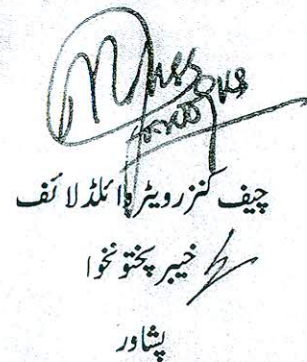 چیف کنزرویٹر وائلڈ لائف
خیبر پختونخوا
پشاور